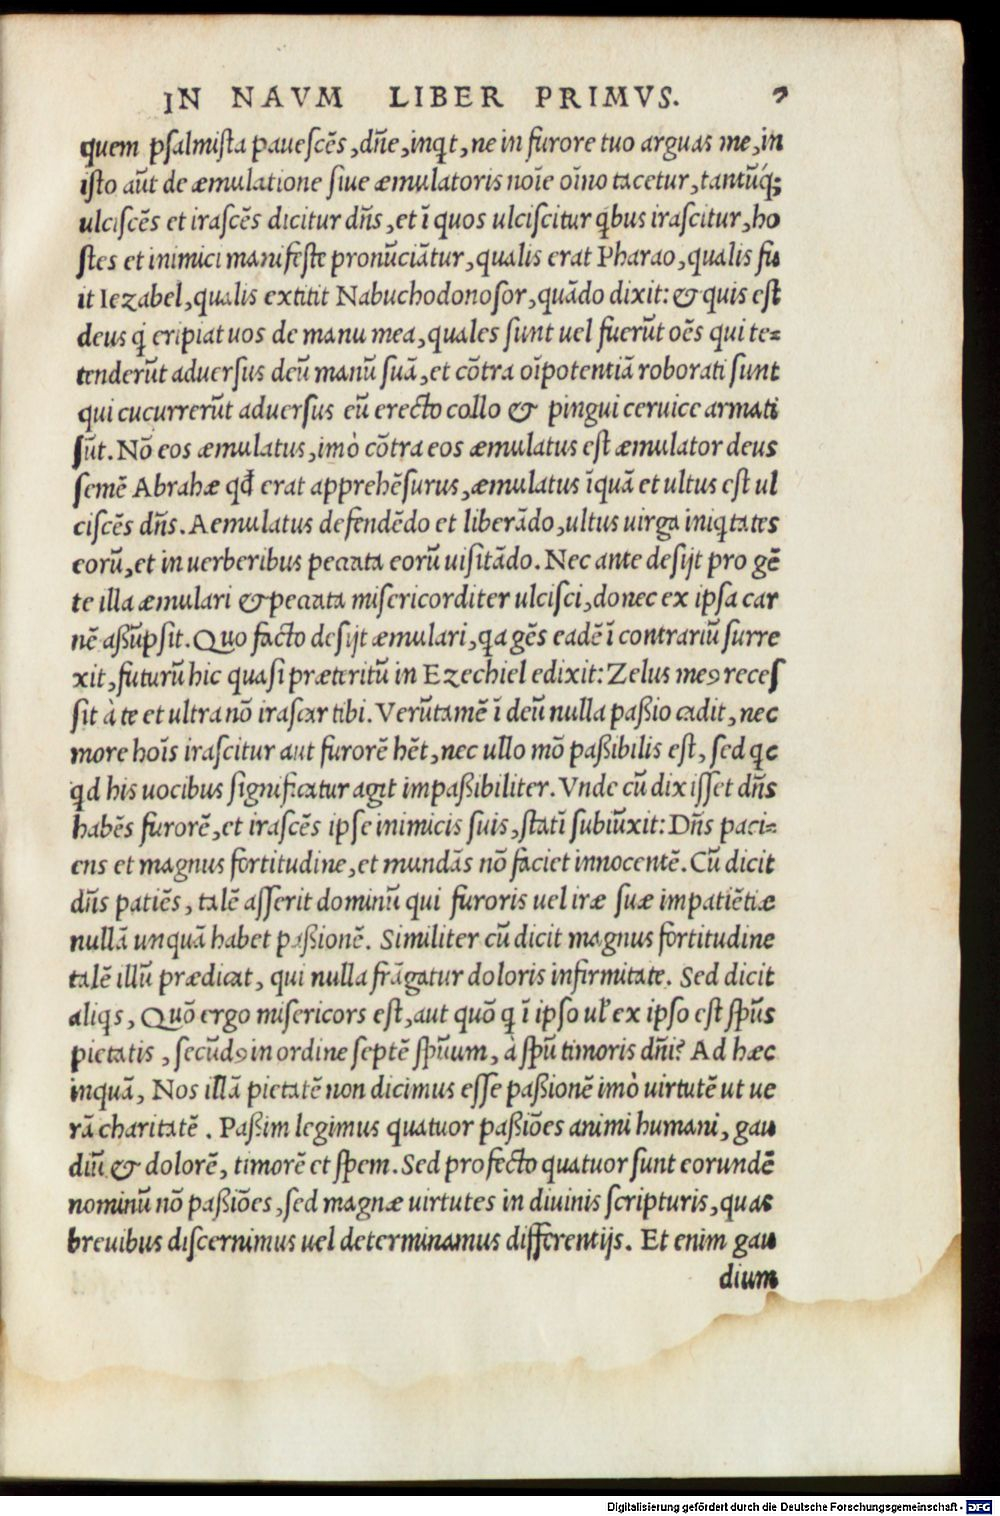 IN NAVM LIBER PRIMVS. 7
quem pſalmiſta paueſcẽs, dñe, inqt, ne in furore tuo arguas me, in
iſto aũt de æmulatione ſiue æmulatoris noĩe oĩno tacetur, tantũq́;
ulciſcẽs et iraſcẽs dicitur dñs, et ĩ quos ulciſcitur qbus iraſcitur, ho
ſtes et inimici manifeſte pronũciãtur, qualis erat Pharao, qualis fu
it Iezabel, qualis extitit Nabuchodonoſor, quãdo dixit: & quis eſt
deus q eripiat uos de manu mea, quales ſunt uel fuerũt oẽs qui te-
tenderũt aduerſus deũ manũ ſuã, et cõtra oĩpotentiã roborati ſunt
qui cucurrerũt aduerſus eũ erecto collo & pingui ceruice armati
ſũt. Nõ eos æmulatus, imò cõtra eos æmulatus eſt æmulator deus
ſemẽ Abrahæ qđ erat apprehẽſurus, æmulatus ĩquã et ultus eſt ul
ciſcẽs dñs. Aemulatus defendẽdo et liberãdo, ultus uirga iniqtates
eorũ, et in uerberibus peccata eorũ uiſitãdo. Nec ante deſijt pro gẽ
te illa æmulari & peccata miſericorditer ulciſci, donec ex ipſa car
nẽ aßũpſit. Quo facto deſijt æmulari, qa gẽs eadẽ ĩ contrariũ ſurre
xit, futurũ hic quaſi præteritũ in Ezechiel edixit: Zelus meꝯ receſ
ſit à te et ultra nõ iraſcar tibi. Verũtamẽ ĩ deũ nulla paßio cadit, nec
more hoĩs iraſcitur aut furorẽ hẽt, nec ullo mõ paßibilis eſt, ſed qc
qd his uocibus ſignificatur agit impaßibiliter. Vnde cũ dixiſſet dñs
habẽs furorẽ, et iraſcẽs ipſe inimicis ſuis, ſtatĩ ſubiũxit: Dñs paci-
ens et magnus fortitudine, et mundãs nõ faciet innocentẽ. Cũ dicit
dñs patiẽs, talẽ aſſerit dominũ qui furoris uel iræ ſuæ impatiẽtiæ
nullã unquã habet paßionẽ. Similiter cũ dicit magnus fortitudine
talẽ illũ prædicat, qui nulla frãgatur doloris infirmitate. Sed dicit
aliqs, Quõ ergo miſericors eſt, aut quõ q ĩ ipſo uł ex ipſo eſt ſpũs
pietatis, ſecũdꝯ in ordine ſeptẽ ſpũum, à ſpũ timoris dñi? Ad hæc
inquã, Nos illã pietatẽ non dicimus eſſe paßionẽ imò uirtutẽ ut ue
rã charitatẽ. Paßim legimus quatuor paßiões animi humani, gau
diũ & dolorẽ, timorẽ et ſpem. Sed profecto quatuor ſunt eorundẽ
nominũ nõ paßiões, ſed magnæ uirtutes in diuinis ſcripturis, quas
breuibus diſcernimus uel determinamus differentijs. Et enim gau
dium
Digitalisierung gefördert durch die Deutsche Forschungsgemeinschaft - DFG